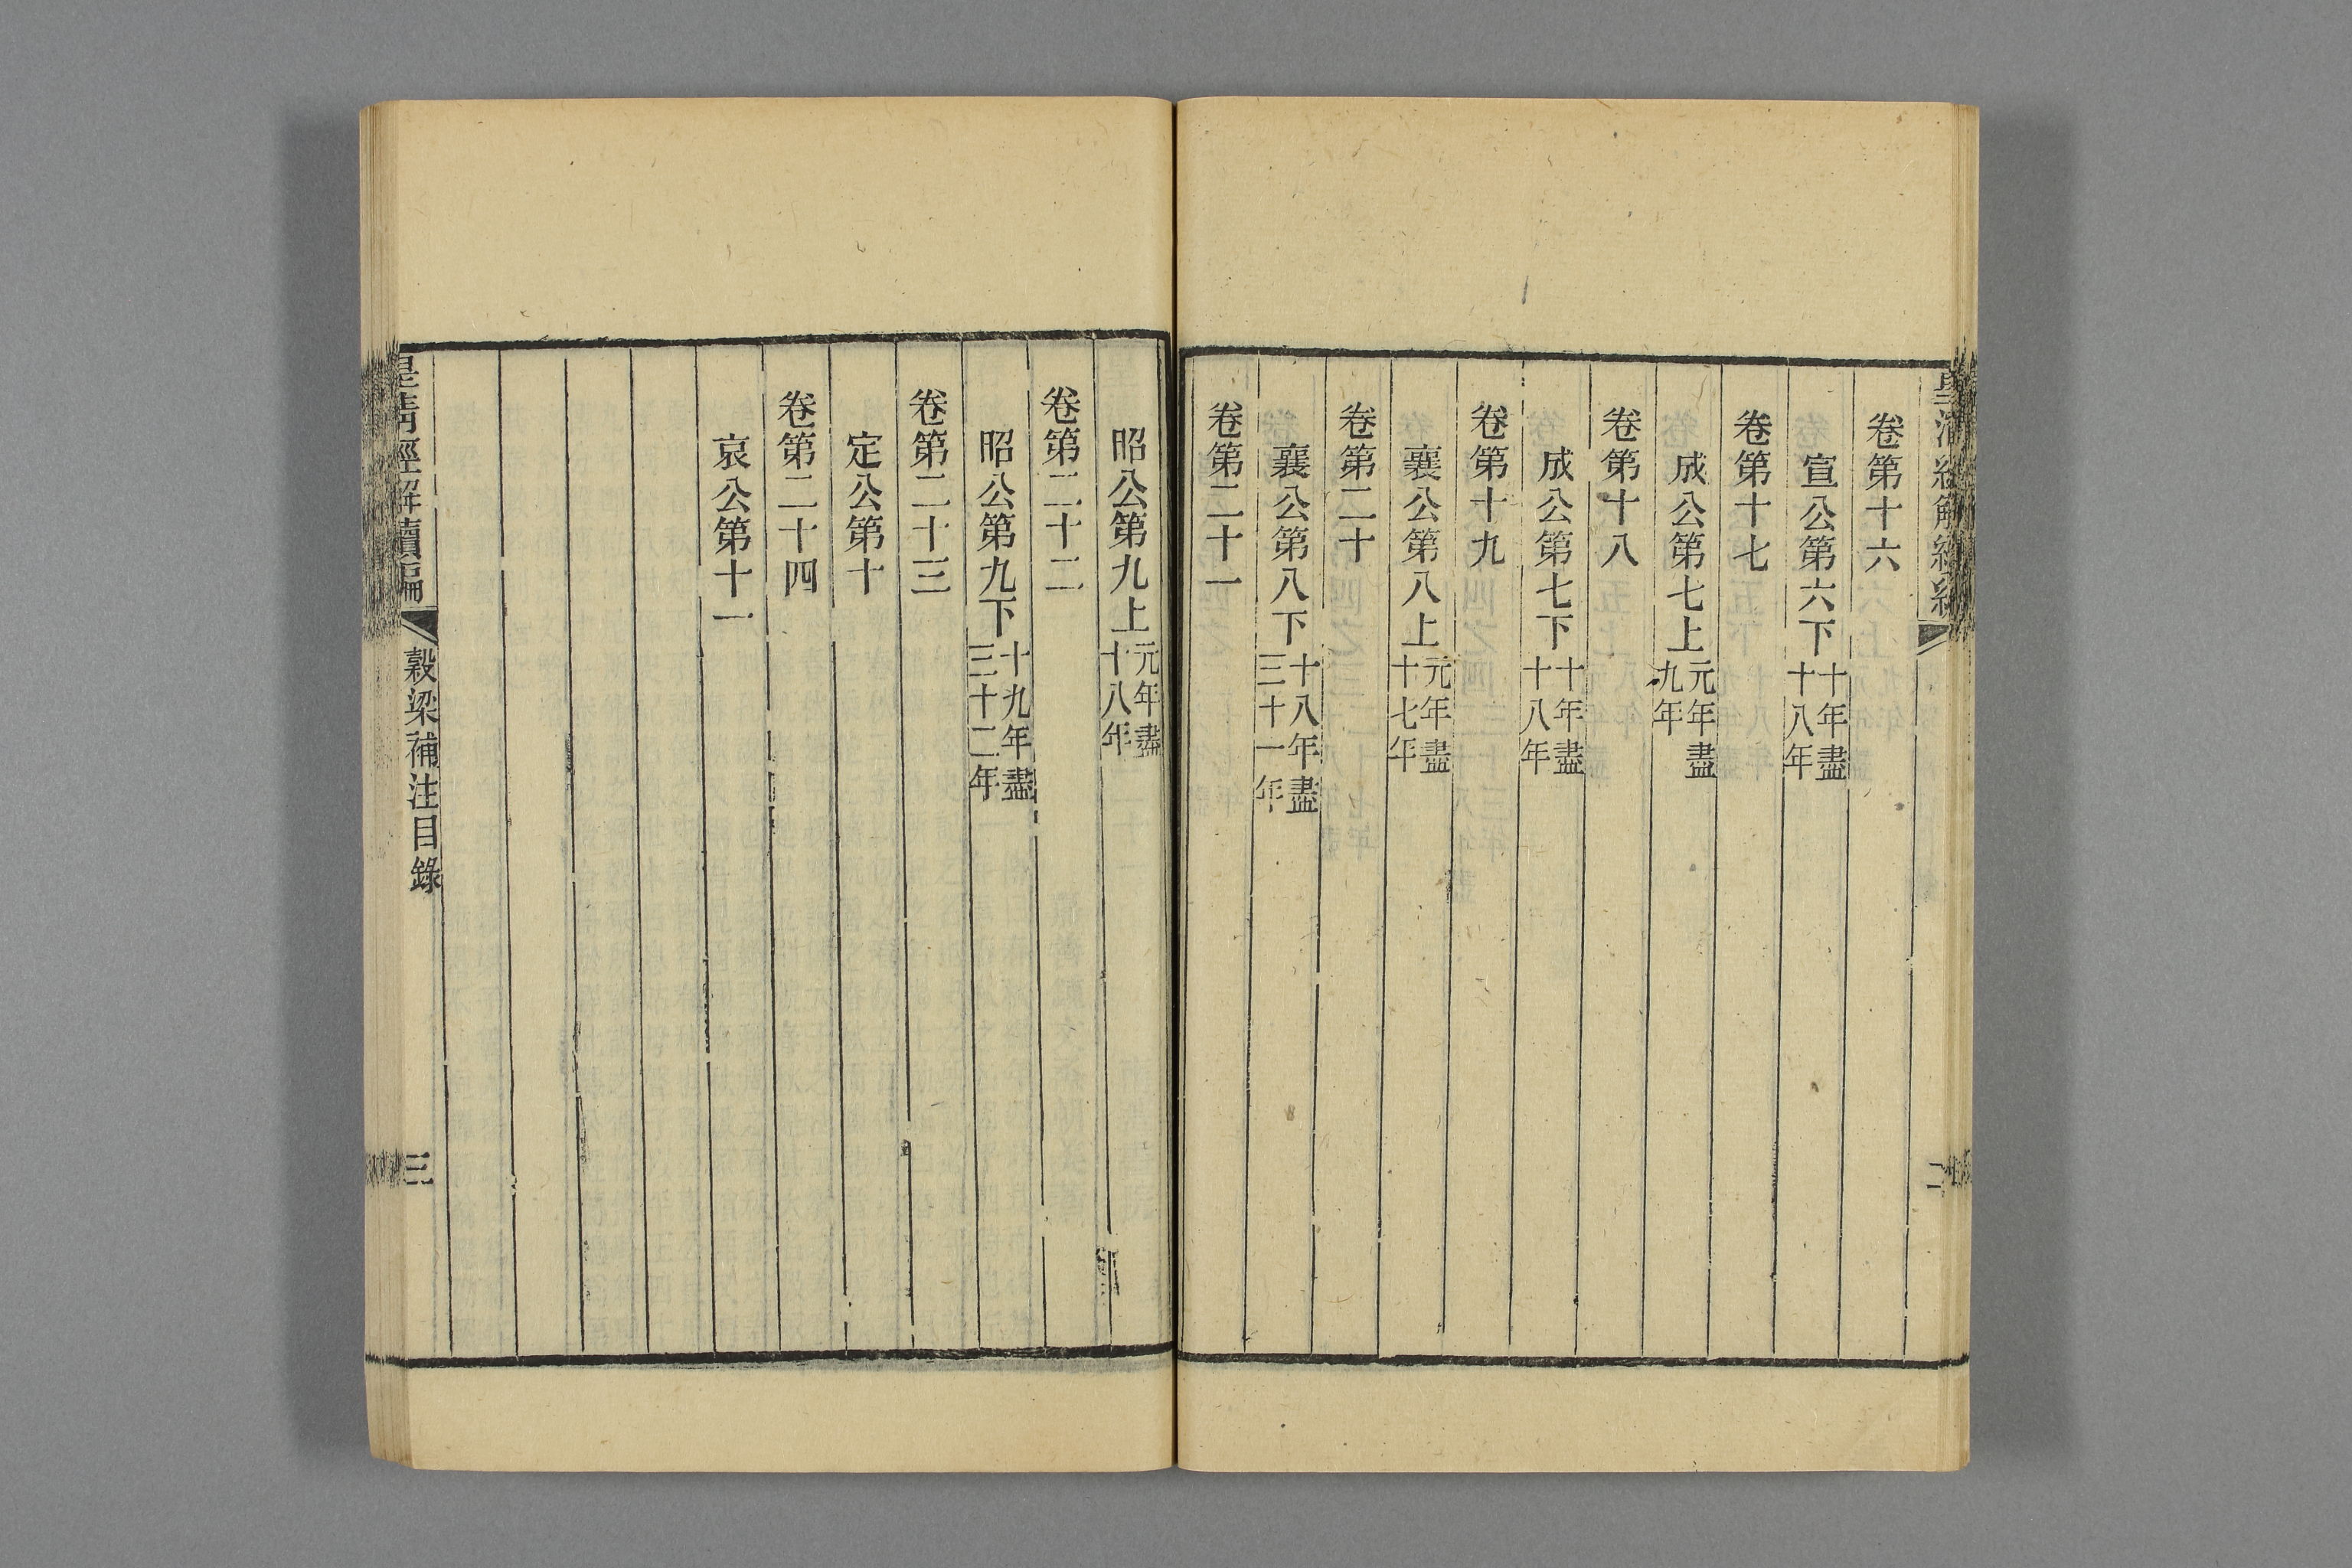 卷第十六
宣公第六下十年盡十八年
卷第十七
成公第七上元年盡九年
卷第十八
成公第七下十年盡十八年
卷第十九
襄公第八上元年盡十七年
卷第二十
襄公第八下十八年盡三十一年
卷第二十一
昭公第九上元年盡十八年
卷第二十二
昭公第九下十九年盡三十二年
卷第二十三
定公第十
卷第二十四
哀公第十一
皇清經解續編
穀梁補注目錄
三